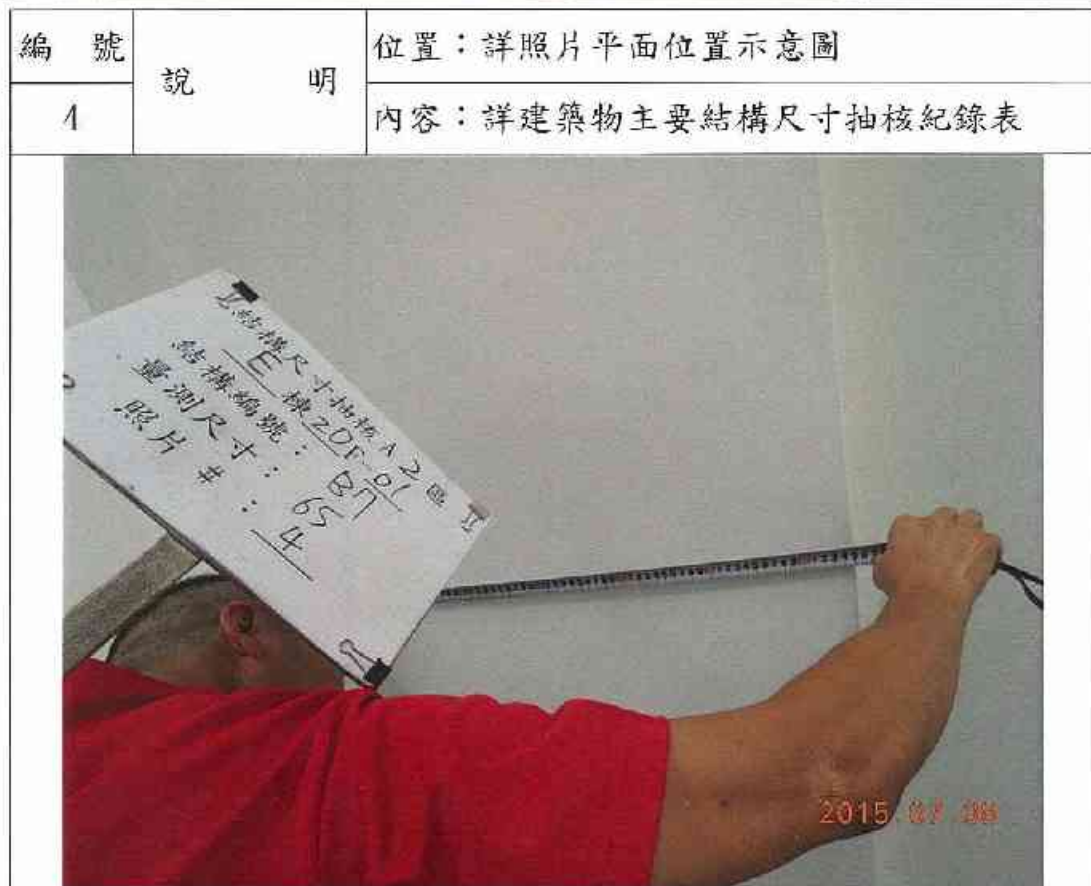 編 號
說 明
位置：詳照片平面位置示意圖
4
內容：詳建築物主要結構尺寸抽核紀錄表
結構尺寸抽核 A2區
E 棟 20F-01
結構編號： B7
量測尺寸： 65
照片 #： 4
2015.07.08